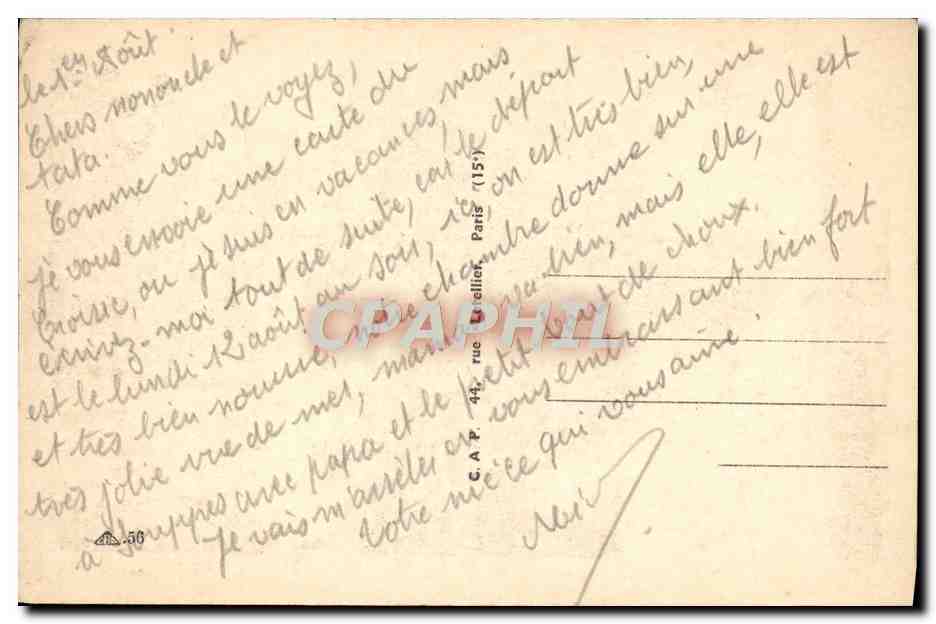 le 1er Août.
Chers nononcle et
tata.
Comme vous le voyez,
je vous envoie une carte du
Croisic, ou je suis en vacances, mais
écrivez-moi tout de suite, car le départ
est le lundi 12 août au soir, ici on est très bien,
et très bien nourrie, notre chambre donne sur une
très jolie vue de mer, maman va bien, mais elle, elle est
à Souppes avec papa et le petit bout de choux.
Je vais m'arrêter en vous embrassant bien fort
Votre nièce qui vous aime.
C.A.P. 44, rue Letellier. Paris (15e)
CPAPHIL
CAP .56